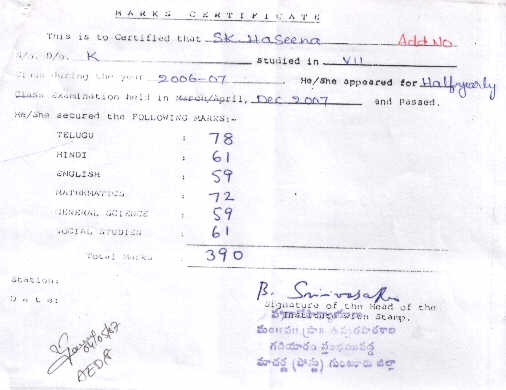 MARKS CERTIFICATE
This is to Certified that SK. Haseena Add No
S/o. D/o. K studied in VII
Class during the year 2006-07 He/She appeared for Halfyearly
Class examination held in March/April, Dec 2007 and Passed.
He/She secured the FOLLOWING MARKS:-
TELUGU : 78
HINDI : 61
ENGLISH : 59
MATHEMATICS : 72
GENERAL SCIENCE : 59
SOCIAL STUDIES : 61
Total Marks 390
Station:
Date:
Signature of the Head of the
Institution with Stamp.
గడియారం స్తంభంవద్ద
మాచర్ల (పోస్టు) గుంటూరు జిల్లా